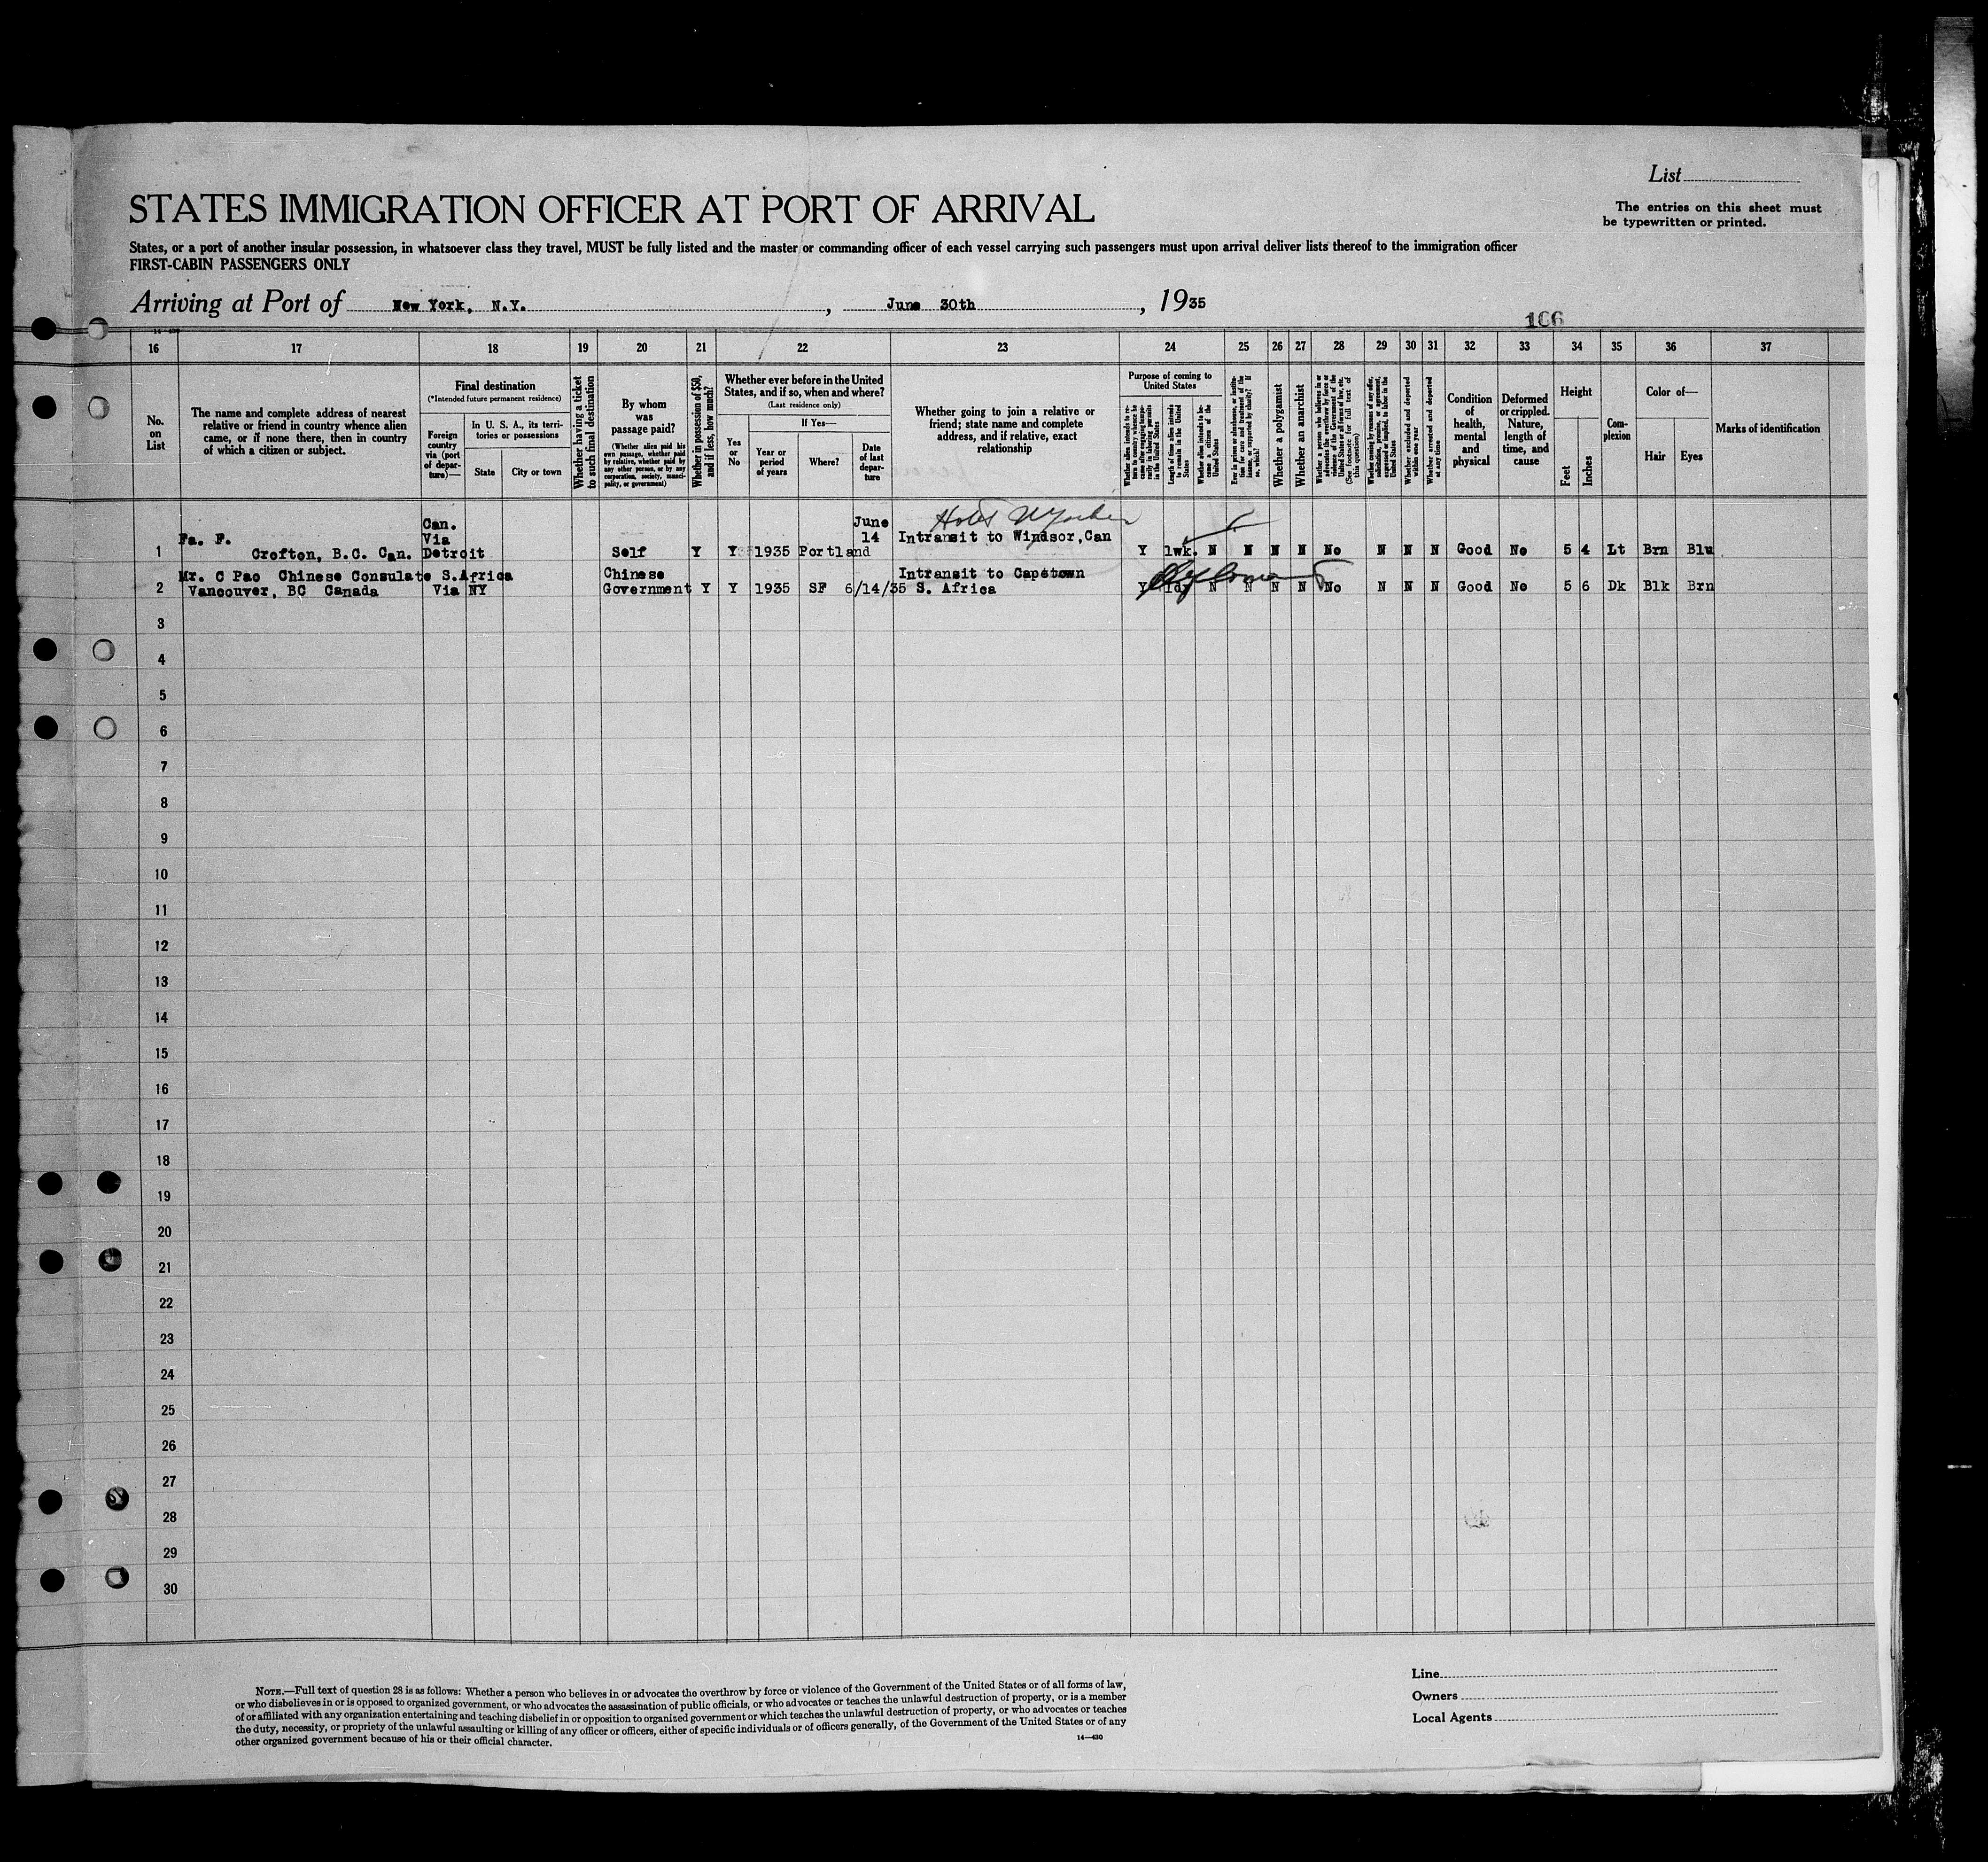 List
STATES IMMIGRATION OFFICER AT PORT OF ARRIVAL
The entries on this sheet must
be typewritten or printed.
States, or a port of another insular possession, in whatsoever class they travel, MUST be fully listed and the master or commanding officer of each vessel carrying such passengers must upon arrival deliver lists thereof to the immigration officer
FIRST-CABIN PASSENGERS ONLY
Arriving at Port of New York, N.Y. , June 30th , 1935
106
16 17 18 19 20 21 22 23 24 25 26 27 28 29 30 31 32 33 34 35 36 37
No.
on
List
The name and complete address of nearest
relative or friend in country whence alien
came, or if none there, then in country
of which a citizen or subject.
Final destination
(*Intended future permanent residence)
Foreign
country
via (port
of depar-
ture)—
In U. S. A., its terri-
tories or possessions
State
City or town
Whether having a ticket
to such final destination
By whom
was
passage paid?
(Whether alien paid his
own passage, whether paid
by relative, whether paid by
any other person, or by any
corporation, society, munici-
pality, or government)
Whether in possession of $50,
and if less, how much?
Whether ever before in the United
States, and if so, when and where?
(Last residence only)
Yes
or
No
If Yes—
Year or
period
of years
Where?
Date
of last
depar-
ture
Whether going to join a relative or
friend; state name and complete
address, and if relative, exact
relationship
Purpose of coming to
United States
Whether alien intends to re-
turn to country whence he
came after engaging tempo-
rarily in laboring pursuits
in the United States
Length of time alien intends
to remain in the United
States
Whether alien intends to be-
come a citizen of the
United States
Ever in prison or almshouse, or institu-
tion for care and treatment of the
insane, or supported by charity? If
so, which?
Whether a polygamist
Whether an anarchist
Whether a person who believes in or
advocates the overthrow by force or
violence of the Government of the
United States or all forms of law, etc.
(See footnote for full text of
this question)
Whether coming by reason of any offer,
solicitation, promise, or agreement,
expressed or implied, to labor in the
United States
Whether excluded and deported
within one year
Whether arrested and deported
at any time
Condition
of
health,
mental
and
physical
Deformed
or crippled.
Nature,
length of
time, and
cause
Height
Feet
Inches
Com-
plexion
Color of—
Hair
Eyes
Marks of identification
Can.
June
Hotel
Fa. F.
Via
14
Intransit to Windsor,Can
1 Crofton, B.C. Can. Detroit Self Y Y 1935 Portland Y 1wk. N N N N No N N N Good No 5 4 Lt Brn Blu
Mr. C Pao Chinese Consulate S.Africa Chinese Intransit to Capetown
2 Vancouver, BC Canada Via NY Government Y Y 1935 SF 6/14/35 S. Africa Y 1dy N N N N No N N N Good No 5 6 Dk Blk Brn
3
4
5
6
7
8
9
10
11
12
13
14
15
16
17
18
19
20
21
22
23
24
25
26
27
28
29
30
NOTE.—Full text of question 28 is as follows: Whether a person who believes in or advocates the overthrow by force or violence of the Government of the United States or of all forms of law,
or who disbelieves in or is opposed to organized government, or who advocates the assassination of public officials, or who advocates or teaches the unlawful destruction of property, or is a member
of or affiliated with any organization entertaining and teaching disbelief in or opposition to organized government or which teaches the unlawful destruction of property, or who advocates or teaches
the duty, necessity, or propriety of the unlawful assaulting or killing of any officer or officers, either of specific individuals or of officers generally, of the Government of the United States or of any
other organized government because of his or their official character.
14—430
Line
Owners
Local Agents